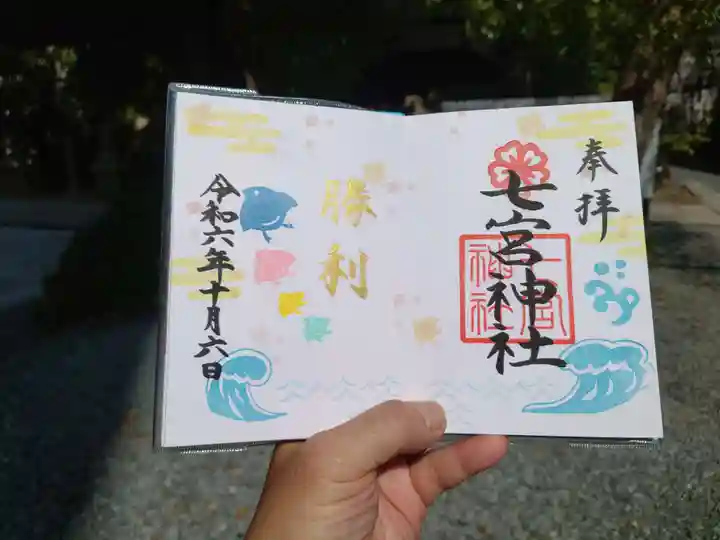 奉拝
七宮神社
七宮
神社
勝利
令和六年十月六日